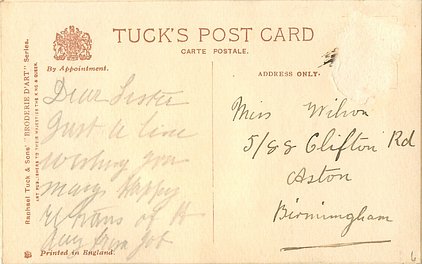 TUCK'S POST CARD
CARTE POSTALE.
By Appointment.
ADDRESS ONLY.
Raphael Tuck & Sons' "BRODERIE D'ART" Series.
ART PUBLISHERS TO THEIR MAJESTIES THE KING & QUEEN.
Dear Sister
Just a line
wishing you
many happy
returns of th
day from Job
Miss Wilson
5/88 Clifton Rd
Aston
Birmingham
Printed in England.
6